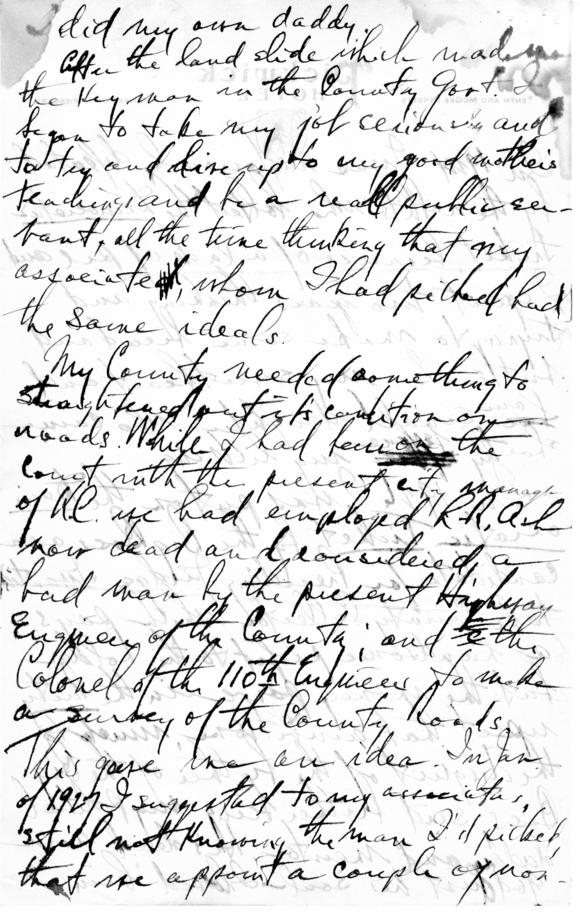 did my own daddy.
After the land slide which made me
the key man in the County Govt. I
began to take my job seriously and
to try and live up to my good mother's
teachings and be a real public ser-
vant, all the time thinking that my
associate, whom I had picked had
the same ideals.
My County needed something to
straightened out its condition on
roads. While I had been on the
court with the present city manager
of K.C. we had employed R.R. Ash
now dead and considered a
bad man by the present Highway
Engineer of the County, and the
Colonel of the 110th Engineers to make
a survey of the County Roads.
This gave me an idea. In Jan
of 1927 I suggested to my associates,
still not knowing the man I'd picked,
that we appoint a couple of non-